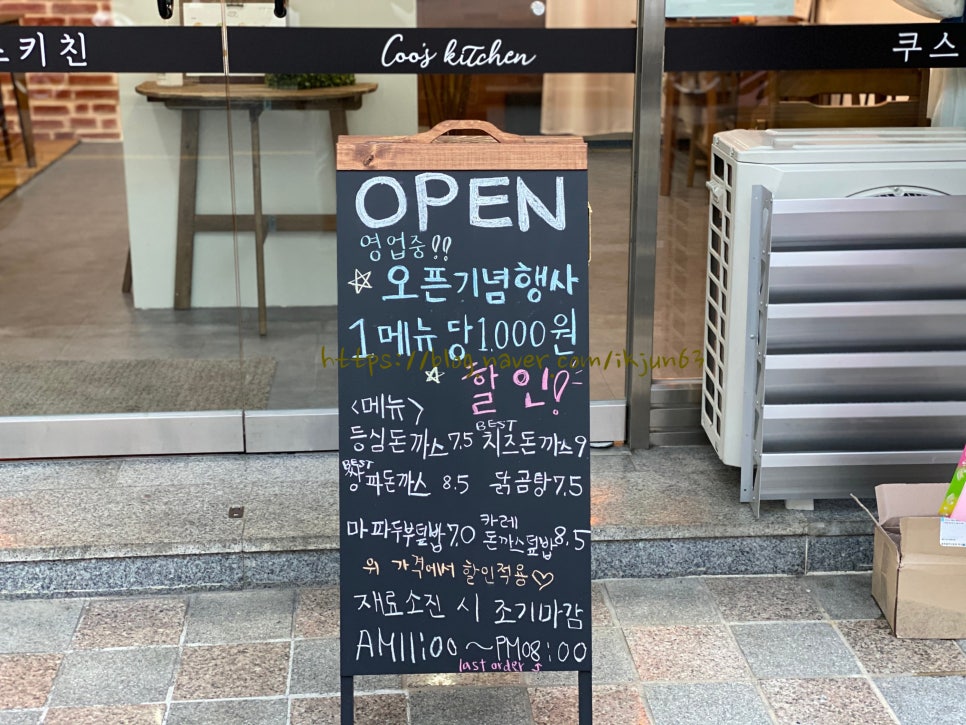 스키친
Coo's kitchen
쿠스
OPEN
영업중!!
☆ 오픈기념행사
1메뉴 당 1.000원
https://blog.naver.com/ikjun63
☆ 할인!
<메뉴>
BEST
등심돈까스 7.5 치즈돈까스 9
BEST
파돈까스 8.5 닭곰탕 7.5
마파두부덮밥 7.0 카레
돈까스덮밥 8.5
위 가격에서 할인적용♡
재료소진 시 조기마감
AM11:00~PM08:00
last order